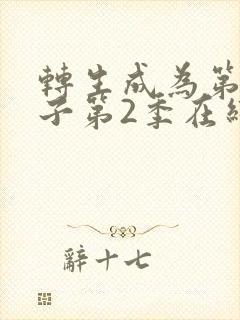 轉生成為第
子第2季在線
辭十七